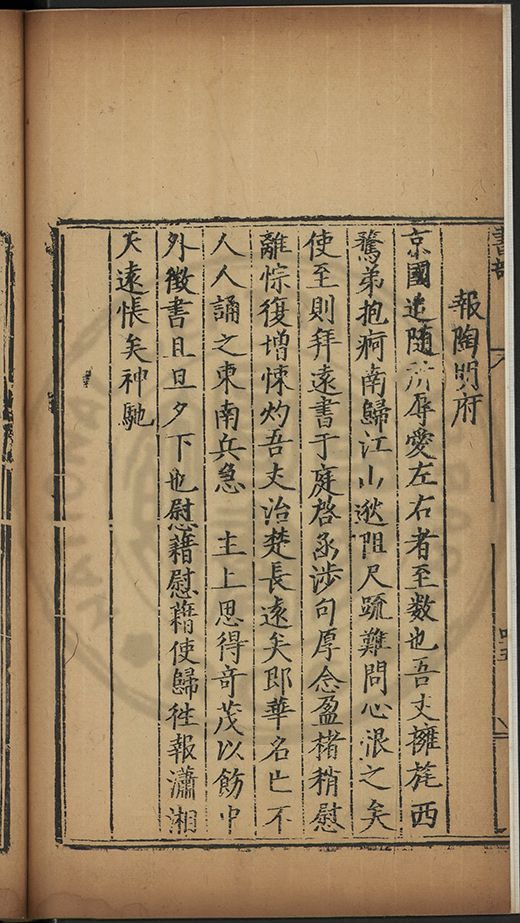 報陶明府
京國追隨所辱愛左右者至数也吾丈擁旄西
鶩弟抱痾南歸江山逖阻尺䟽難問心泯之矣
使至則拜遠書于庭啓函涉句厚念盈楮稍慰
離悰復增悚灼吾丈治楚長遠矣郎華名亡不
人人誦之東南兵急 主上思得奇茂以飭中
外徵書且旦夕下也慰藉慰藉使歸徃報瀟湘
天遠悵矣神馳
書部